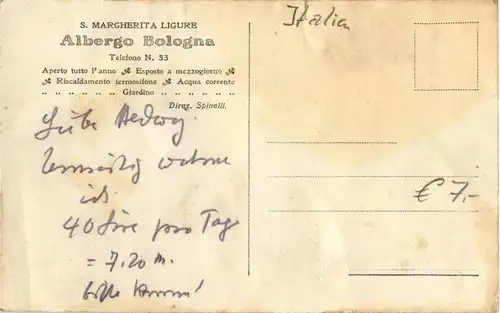 S. MARGHERITA LIGURE
Albergo Bologna
Telefono N. 33
Aperto tutto l'anno Esposto a mezzogiorno
Riscaldamento termosifone Acqua corrente
„ „ „ „ „ „ Giardino „ „ „ „ „ „
Diraz. Spinelli.
Italien
Liebe Hedwig
wohne
ich
40 Lire pro Tag
= 7.20 M.
bitte komm!
€ 7,-